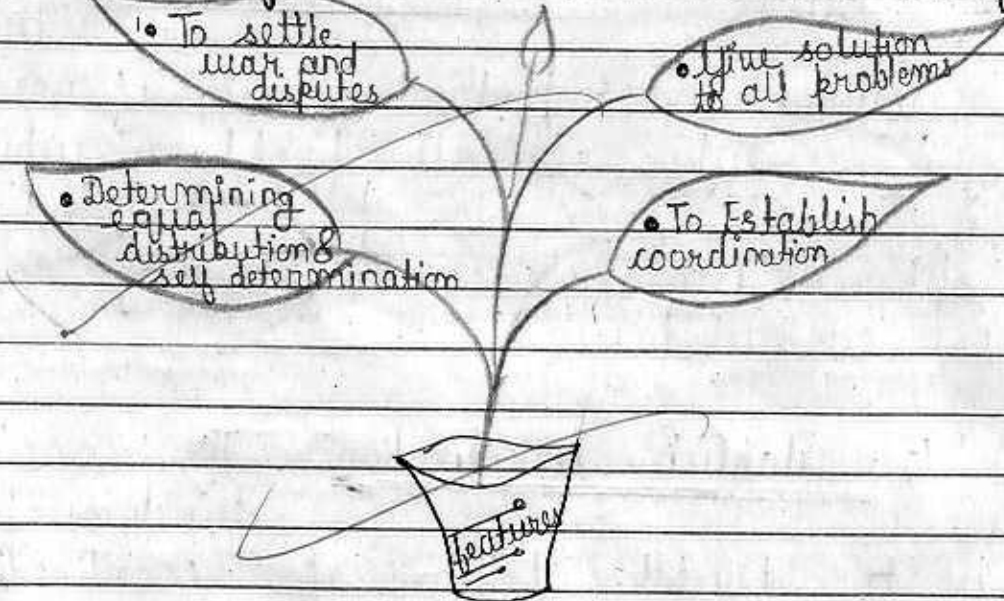 • To settle
war and
disputes
• Give solution
to all problems
• Determining
equal
distribution &
self determination
• To Establish
coordination
features